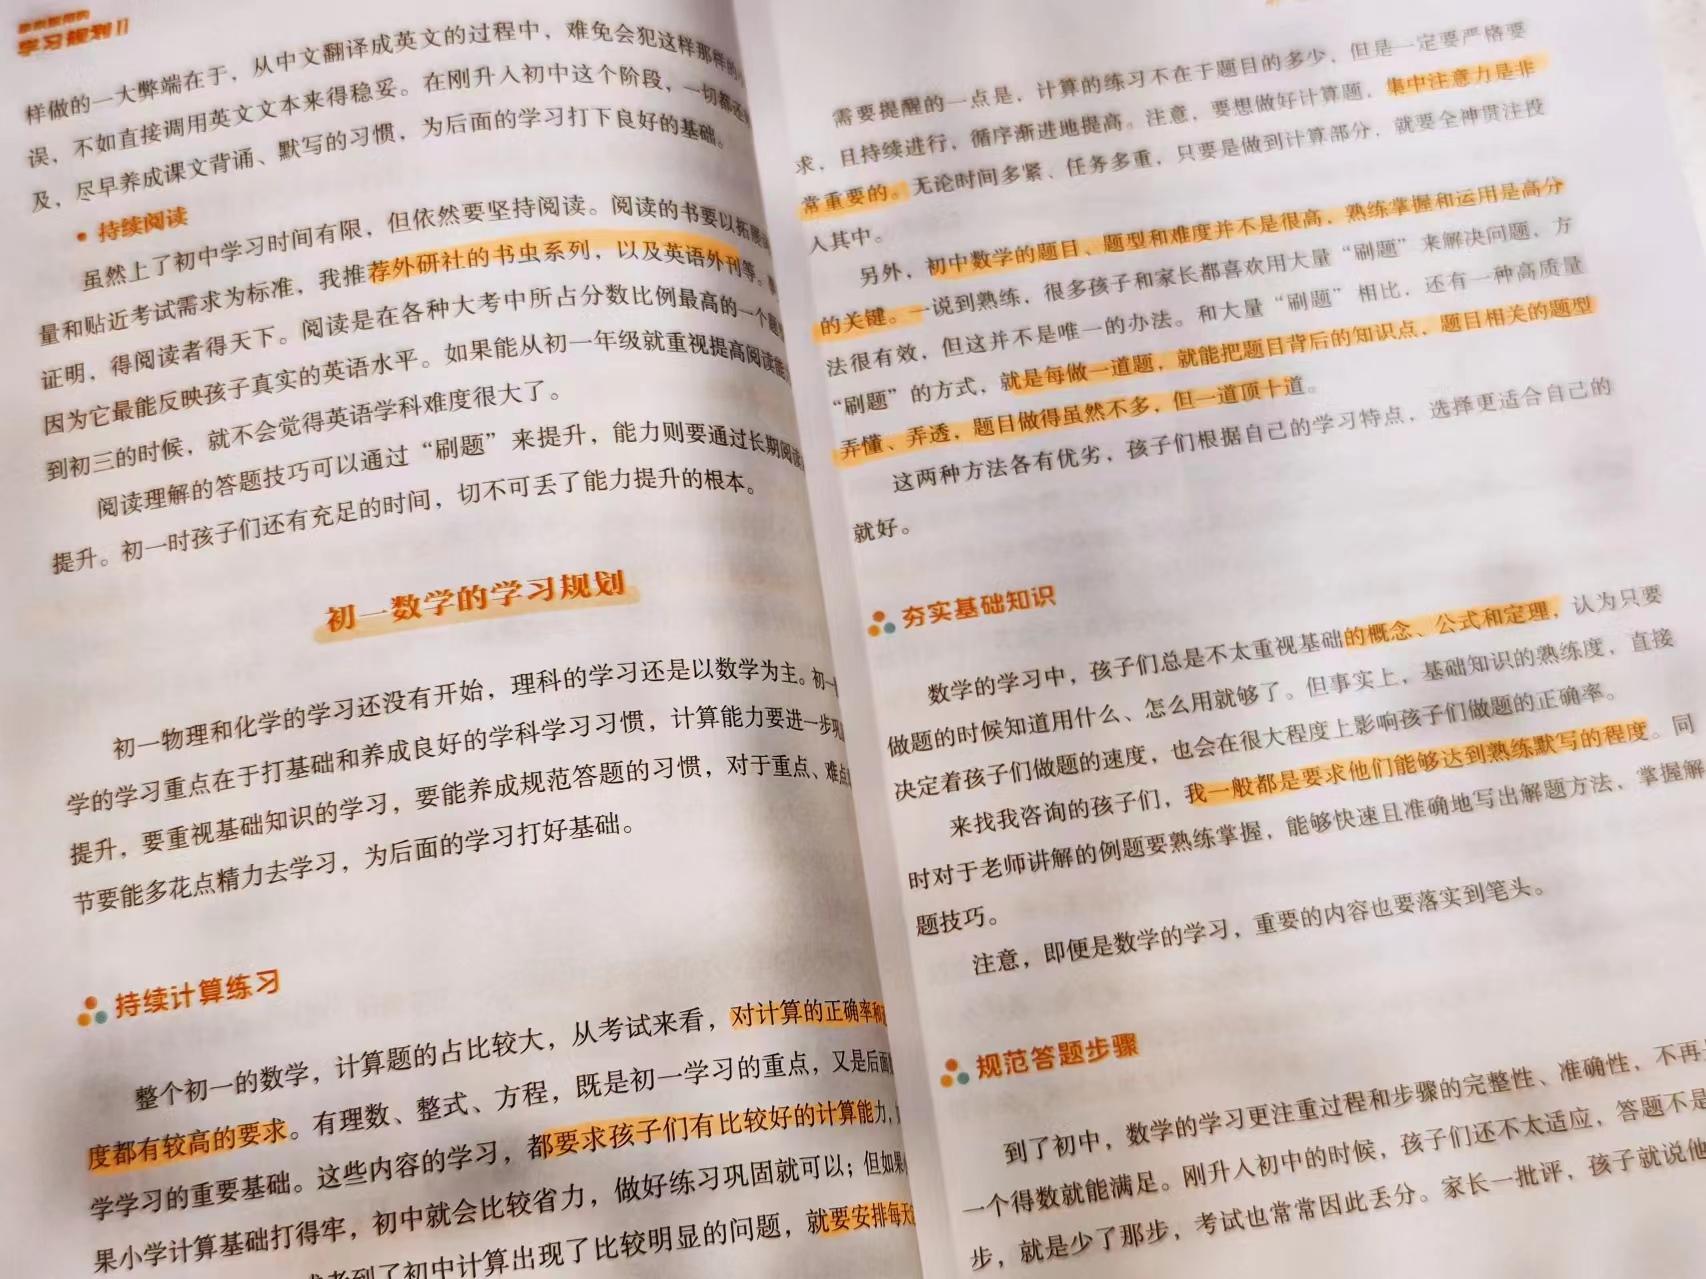 学习规划II
样做的一大弊端在于，从中文翻译成英文的过程中，难免会犯这样那样的
误，不如直接调用英文文本来得稳妥。在刚升入初中这个阶段，一切都还
及，尽早养成课文背诵、默写的习惯，为后面的学习打下良好的基础。
• 持续阅读
虽然上了初中学习时间有限，但依然要坚持阅读。阅读的书要以拓展
量和贴近考试需求为标准，我推荐外研社的书虫系列，以及英语外刊等。
证明，得阅读者得天下。阅读是在各种大考中所占分数比例最高的一个题
因为它最能反映孩子真实的英语水平。如果能从初一年级就重视提高阅读能
到初三的时候，就不会觉得英语学科难度很大了。
阅读理解的答题技巧可以通过“刷题”来提升，能力则要通过长期阅读
提升。初一时孩子们还有充足的时间，切不可丢了能力提升的根本。
初一数学的学习规划
初一物理和化学的学习还没有开始，理科的学习还是以数学为主。初一
学的学习重点在于打基础和养成良好的学科学习习惯，计算能力要进一步巩
提升，要重视基础知识的学习，要能养成规范答题的习惯，对于重点、难点
节要能多花点精力去学习，为后面的学习打好基础。
持续计算练习
整个初一的数学，计算题的占比较大，从考试来看，对计算的正确率和
度都有较高的要求。有理数、整式、方程，既是初一学习的重点，又是后面
学学习的重要基础。这些内容的学习，都要求孩子们有比较好的计算能力，
果小学计算基础打得牢，初中就会比较省力，做好练习巩固就可以；但如果
到了初中计算出现了比较明显的问题，就要安排每天
需要提醒的一点是，计算的练习不在于题目的多少，但是一定要严格要
求，且持续进行，循序渐进地提高。注意，要想做好计算题，集中注意力是非
常重要的。无论时间多紧、任务多重，只要是做到计算部分，就要全神贯注投
入其中。
另外，初中数学的题目、题型和难度并不是很高，熟练掌握和运用是高分
的关键。一说到熟练，很多孩子和家长都喜欢用大量“刷题”来解决问题，方
法很有效，但这并不是唯一的办法。和大量“刷题”相比，还有一种高质量
“刷题”的方式，就是每做一道题，就能把题目背后的知识点，题目相关的题型
弄懂、弄透，题目做得虽然不多，但一道顶十道。
这两种方法各有优劣，孩子们根据自己的学习特点，选择更适合自己的
就好。
夯实基础知识
数学的学习中，孩子们总是不太重视基础的概念、公式和定理，认为只要
做题的时候知道用什么、怎么用就够了。但事实上，基础知识的熟练度，直接
决定着孩子们做题的速度，也会在很大程度上影响孩子们做题的正确率。
来找我咨询的孩子们，我一般都是要求他们能够达到熟练默写的程度。同
时对于老师讲解的例题要熟练掌握，能够快速且准确地写出解题方法，掌握解
题技巧。
注意，即便是数学的学习，重要的内容也要落实到笔头。
规范答题步骤
到了初中，数学的学习更注重过程和步骤的完整性、准确性，不再
一个得数就能满足。刚升入初中的时候，孩子们还不太适应，答题不是
步，就是少了那步，考试也常常因此丢分。家长一批评，孩子就说他